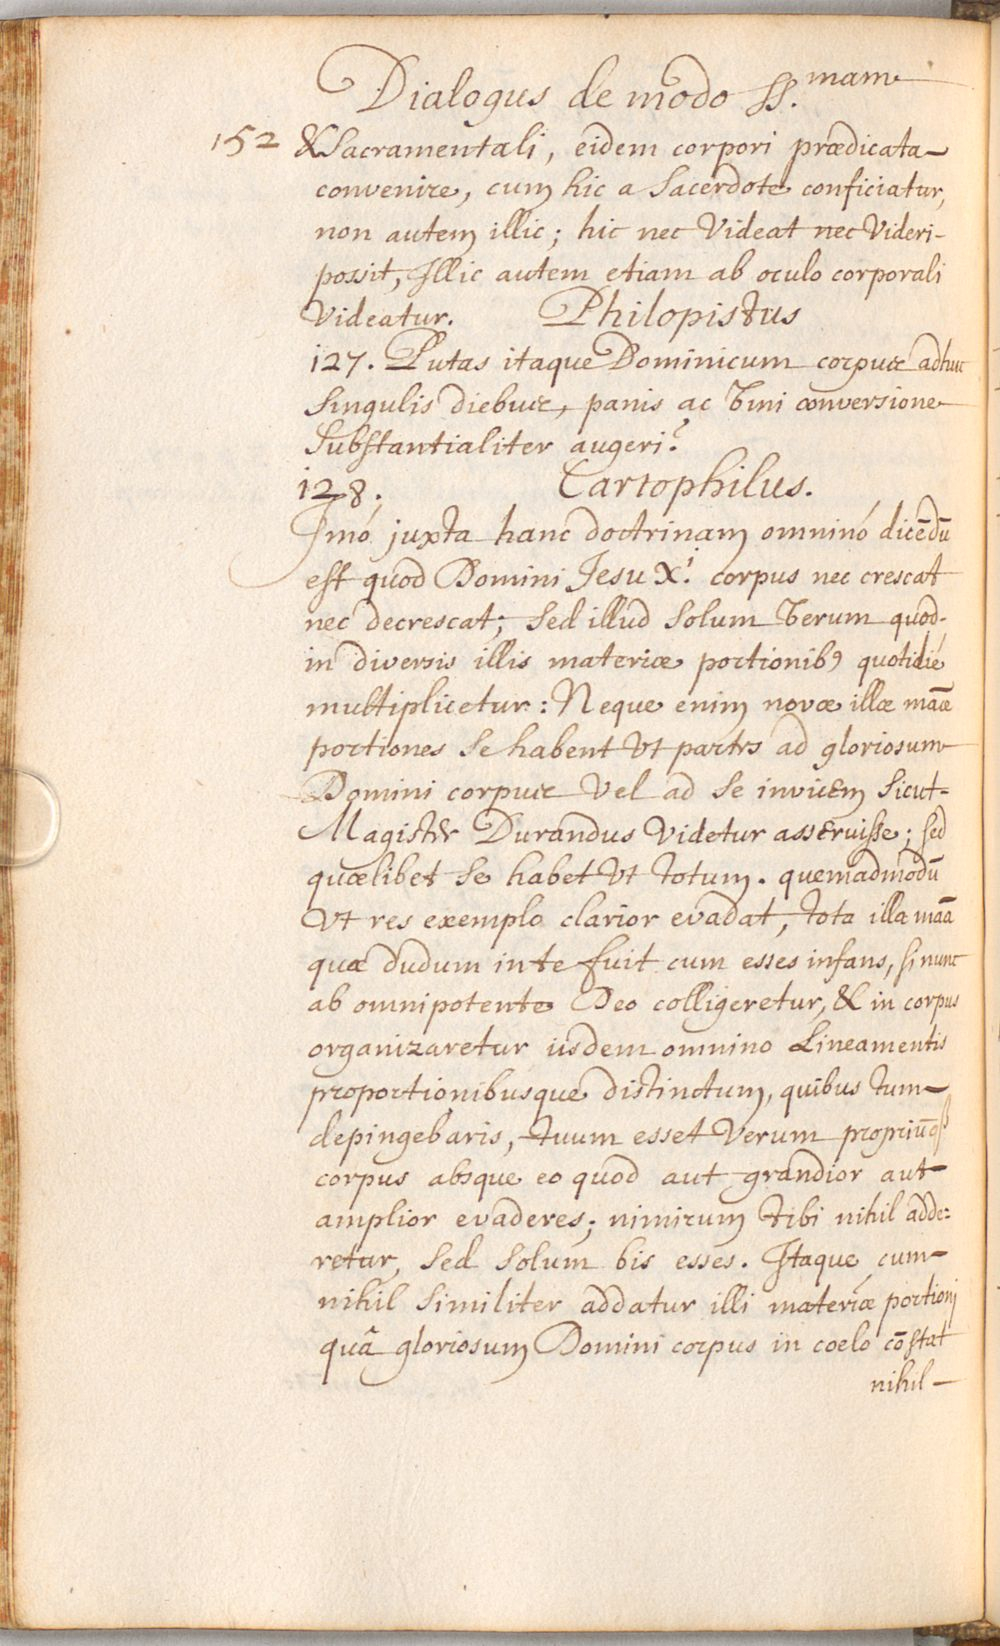 Dialogus de modo SS.mam
152 & Sacramentali, eidem corpori prædicata
convenire, cum hic a Sacerdote conficiatur,
non autem illic; hic nec Videat nec Videri-
possit, Illic autem etiam ab oculo corporali
Videatur. Philopistus
127. Putas itaque Dominicum corpus adhuc
Singulis diebus, panis ac Vini conversione
Substantialiter augeri?
128. Cartophilus.
Imó juxta hanc doctrinam omninó dicēdū
est quod Domini Jesu Xi. corpus nec crescat
nec decrescat; Sed illud Solum Verum quod-
in diversis illis materiæ portionibꝰ quotidié
multiplicetur: Neque enim novæ illæ māæ
portiones Se habent Vt partes ad gloriosum
Domini corpus Vel ad Se invicem Sicut-
Magister Durandus Videtur asseruisse; sed
quælibet Se habet Vt totum. quemadmodū
Vt res exemplo clarior evadat, tota illa māa
quæ dudum in te fuit cum esses infans, si nunc
ab omnipotente Deo colligeretur, & in corpus
organizaretur iisdem omnino Lineamentis
proportionibusque distinctum, quibus tum
depingebaris, tuum esset Verum propriūqꝫ
corpus absque eo quod aut grandior aut
amplior evaderes; nimirum tibi nihil adde=
retur, Sed Solum bis esses. Itaque cum
nihil Similiter addatur illi materiæ portioni
quâ gloriosum Domini corpus in coelo cōstat
nihil